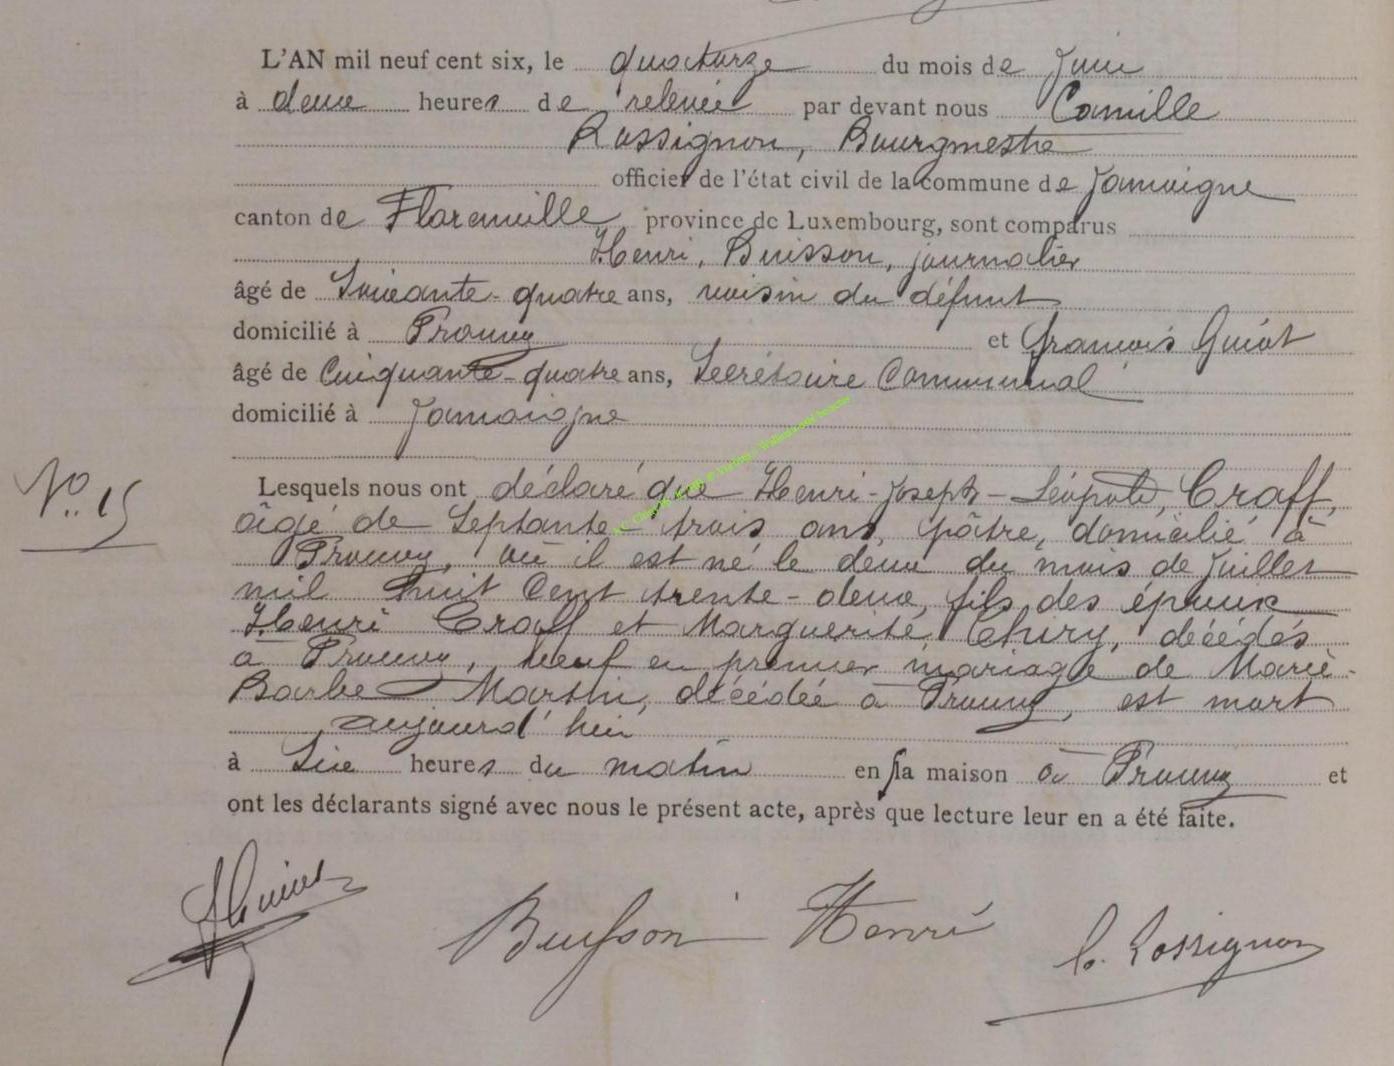 L'AN mil neuf cent six, le quatorze du mois de Juin
à deux heures de relevée par devant nous Camille
Rossignon, Bourgmestre
officier de l'état civil de la commune de Jamoigne
canton de Florenville, province de Luxembourg, sont comparus
Henri, Buisson, journalier
âgé de Soixante-quatre ans, voisin du défunt
domicilié à Prouvy et François Guiot
âgé de Cinquante-quatre ans, Secrétaire Communal
domicilié à Jamoigne
N° 15
Lesquels nous ont déclaré que Henri-Joseph-Léopold, Craff,
âgé de Septante-trois ans, pâtre, domicilié à
Prouvy, où il est né le deux du mois de Juillet
mil huit Cent trente-deux, fils des époux
Henri Craff et Marguerite Thiry, décédés
à Prouvy, veuf en premier mariage de Marie-
Barbe Martin, décédée à Prouvy, est mort
aujourd'hui
à Six heures du matin en sa maison à Prouvy et
ont les déclarants signé avec nous le présent acte, après que lecture leur en a été faite.
FGuiot Buisson Henri C. Rossignon